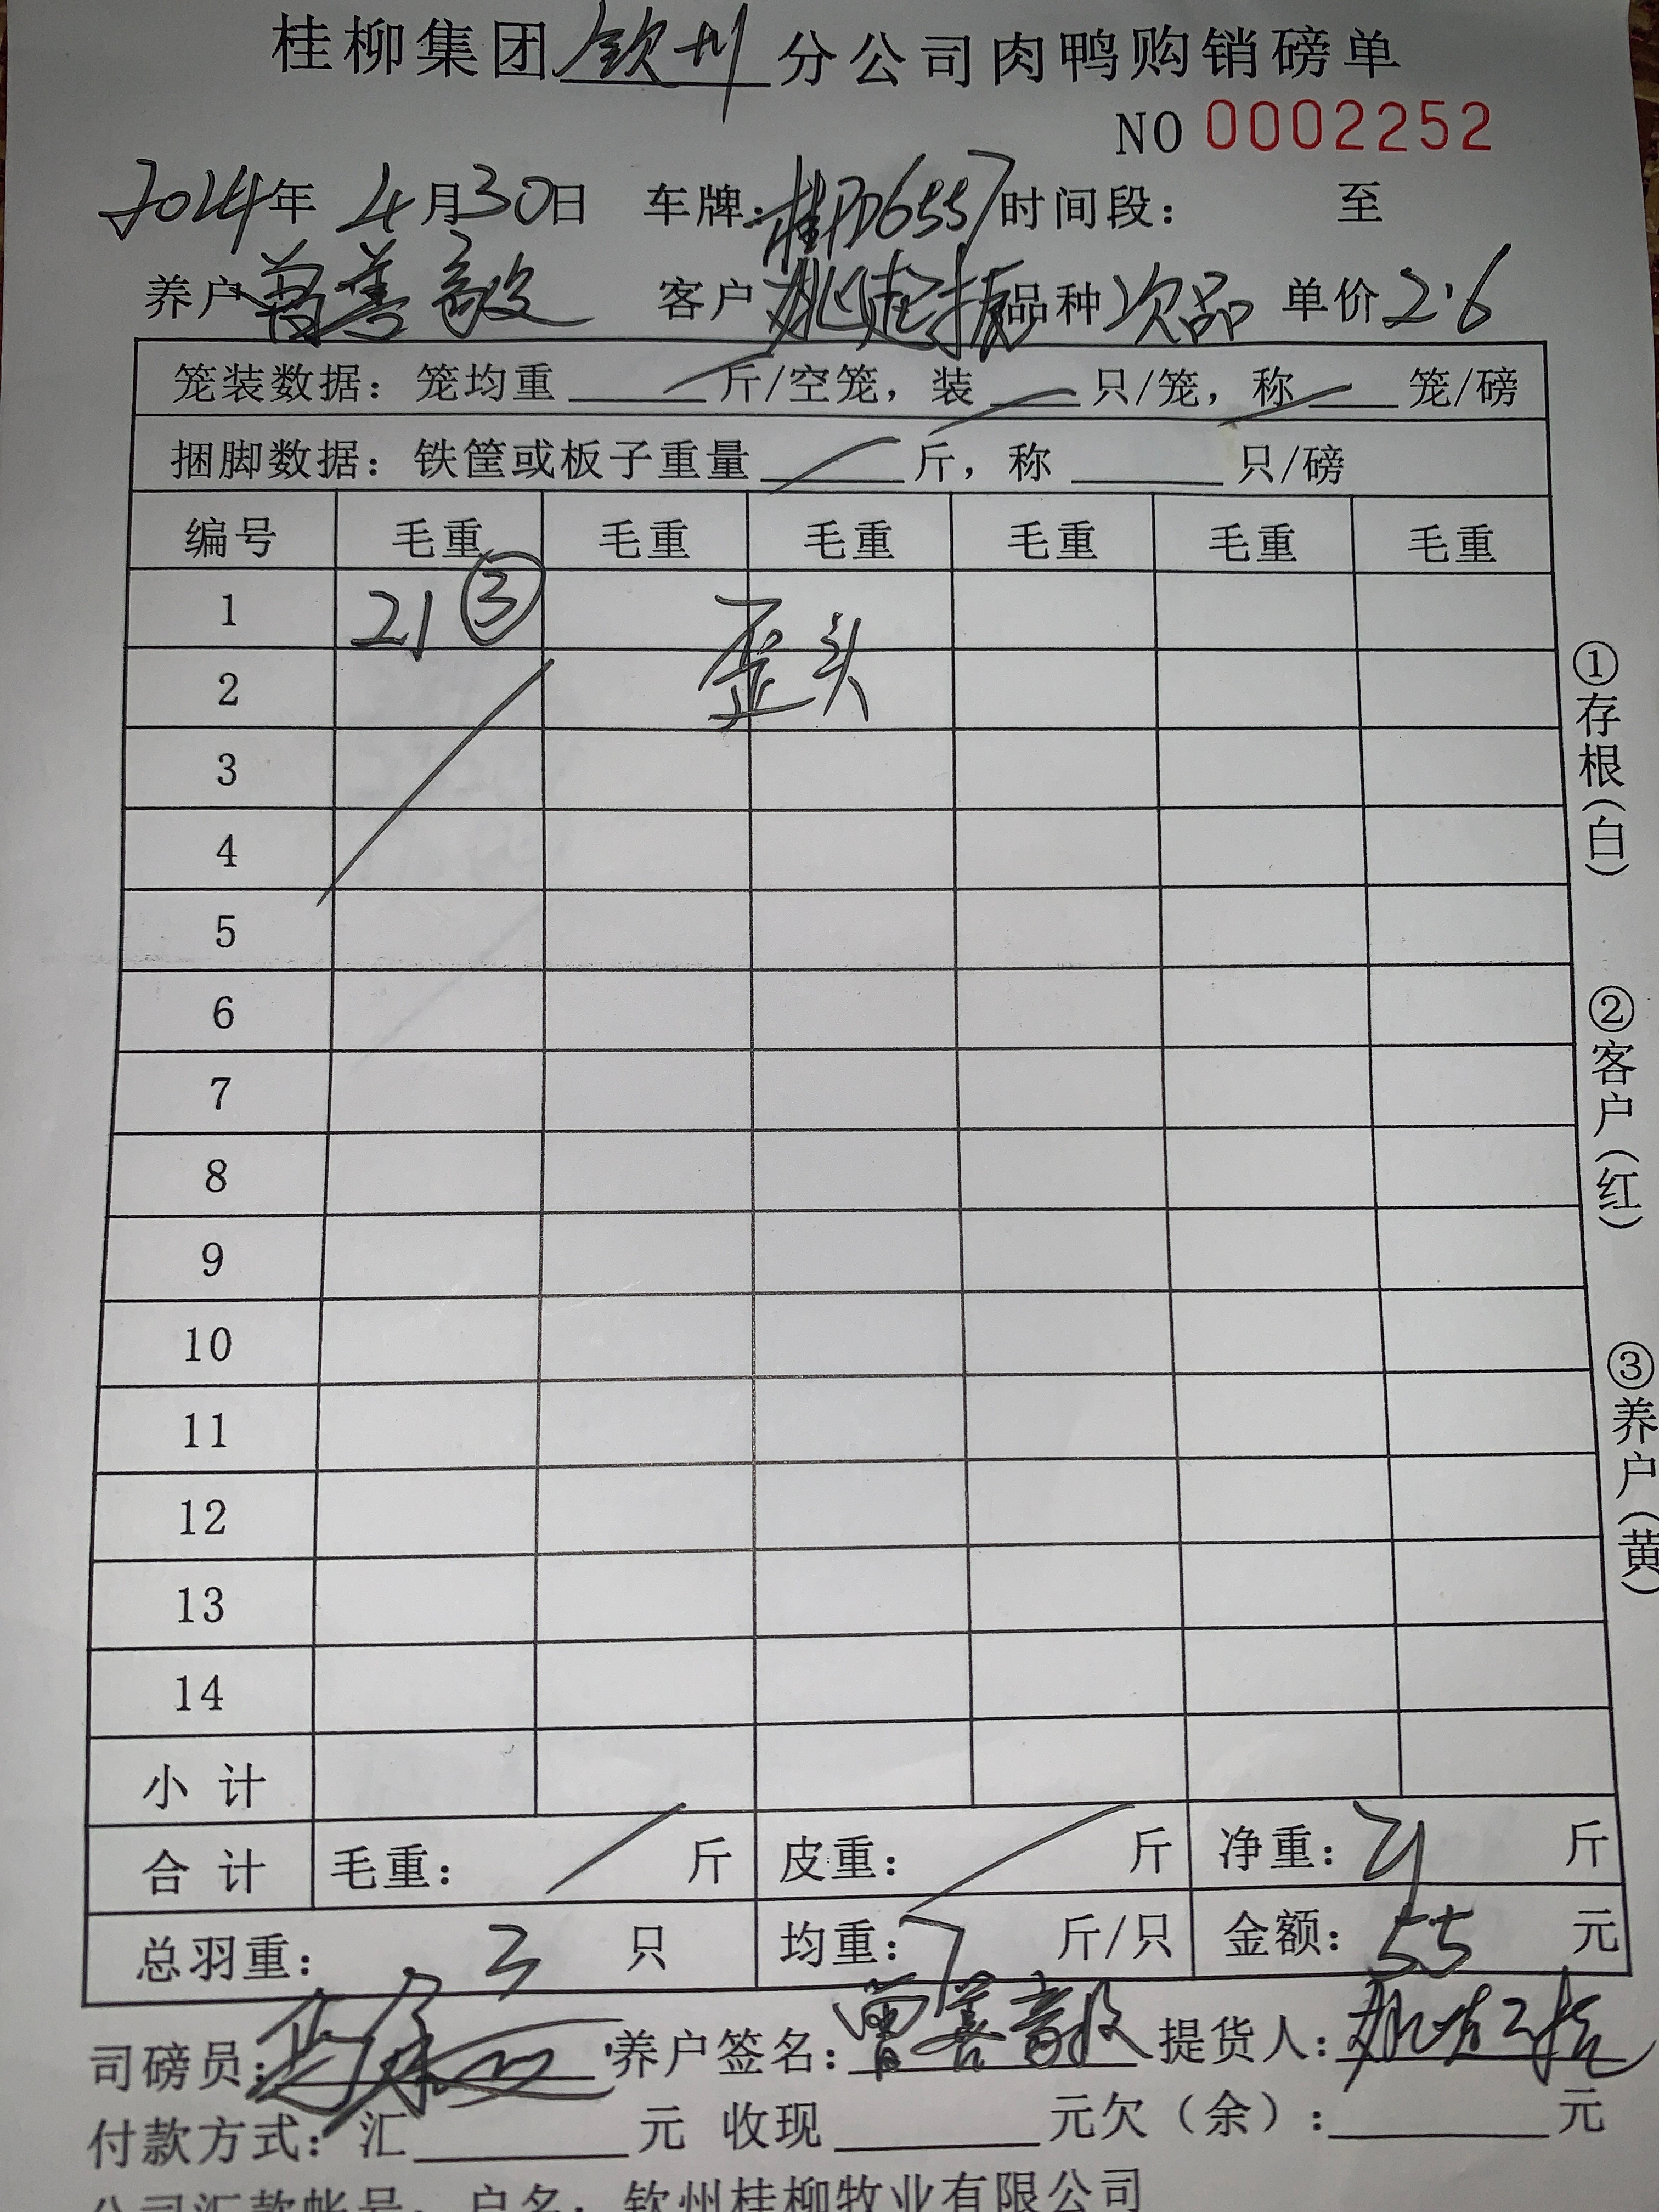 桂柳集团钦州分公司肉鸭购销磅单
NO 0002252
2024年 4月30日 车牌：桂PD6557 时间段： 至
养户 曾善毅 客户 姚起振 品种 次品 单价 2.6
笼装数据：笼均重 斤/空笼，装 只/笼，称 笼/磅
捆脚数据：铁筐或板子重量 斤，称 只/磅
编号 毛重 毛重 毛重 毛重 毛重 毛重
1 21 ③ 歪头
2
3
4
5
6
7
8
9
10
11
12
13
14
小计
合计 毛重： 斤 皮重： 斤 净重：21 斤
总羽重：3 只 均重：7 斤/只 金额：55 元
司磅员： 养户签名：曾善毅 提货人：姚起振
付款方式：汇 元 收现 元欠（余）： 元
公司汇款帐号：户名：钦州桂柳牧业有限公司
①存根（白）
②客户（红）
③养户（黄）